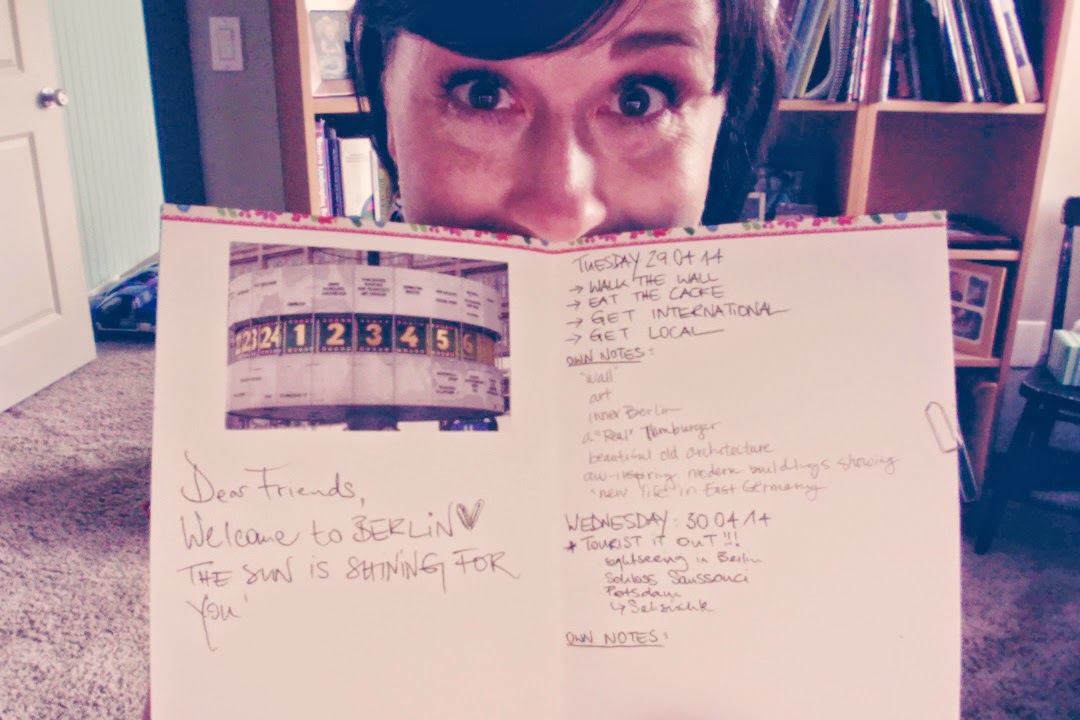 23 24 1 2 3 4 5 6
Dear Friends,
Welcome to BERLIN
THE SUN IS SHINING FOR
YOU
TUESDAY 29 04 14
→ WALK THE WALL
→ EAT THE CACKE
→ GET INTERNATIONAL
→ GET LOCAL
OWN NOTES:
"wall"
art
inner Berlin
a "Real" Hamburger
beautiful old architecture
aw-inspiring modern buildings showing
"new life" in East Germany
WEDNESDAY: 30 04 14
* TOURIST IT OUT!!!
sightseeing in Berlin
Schloss Sanssouci
Potsdam
OWN NOTES: